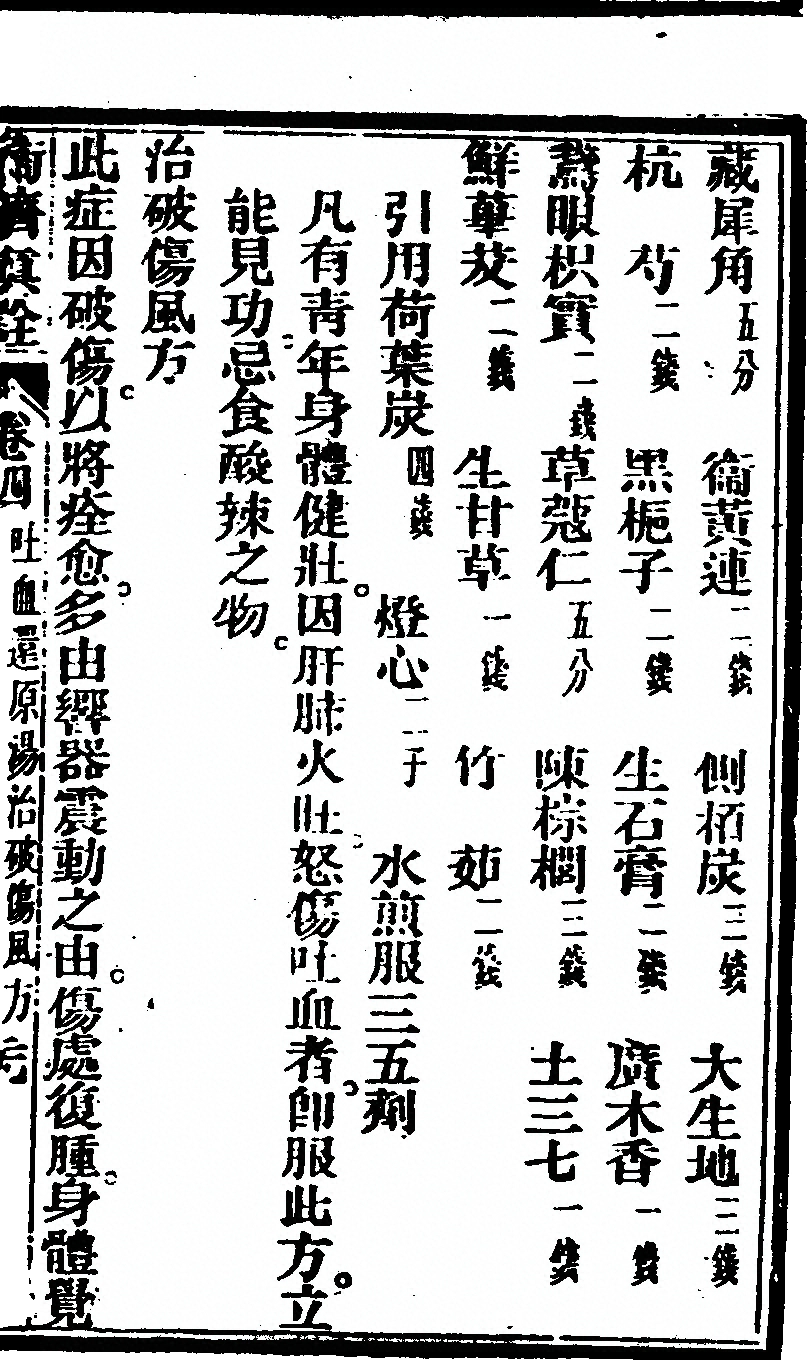 藏犀角五分 衛黃連二錢 側栢炭三錢 大生地三錢
杭芍二錢 黑梔子二錢 生石膏二錢 廣木香一錢
鵞眼枳實二錢 草蔻仁五分 陳棕櫚三錢 土三七一錢
鮮華茇二錢 生甘草一錢 竹茹二錢
引用荷葉炭四錢 燈心二子 水煎服三五劑
凡有靑年身體健壯。因肝肺火旺。怒傷吐血者。卽服此方。立
能見功。忌食酸辣之物。
治破傷風方
此症因破傷。以將痊愈。多由響器震動之由。傷處復腫。身體覺
濟眞詮 卷四 吐血還原湯治破傷風方